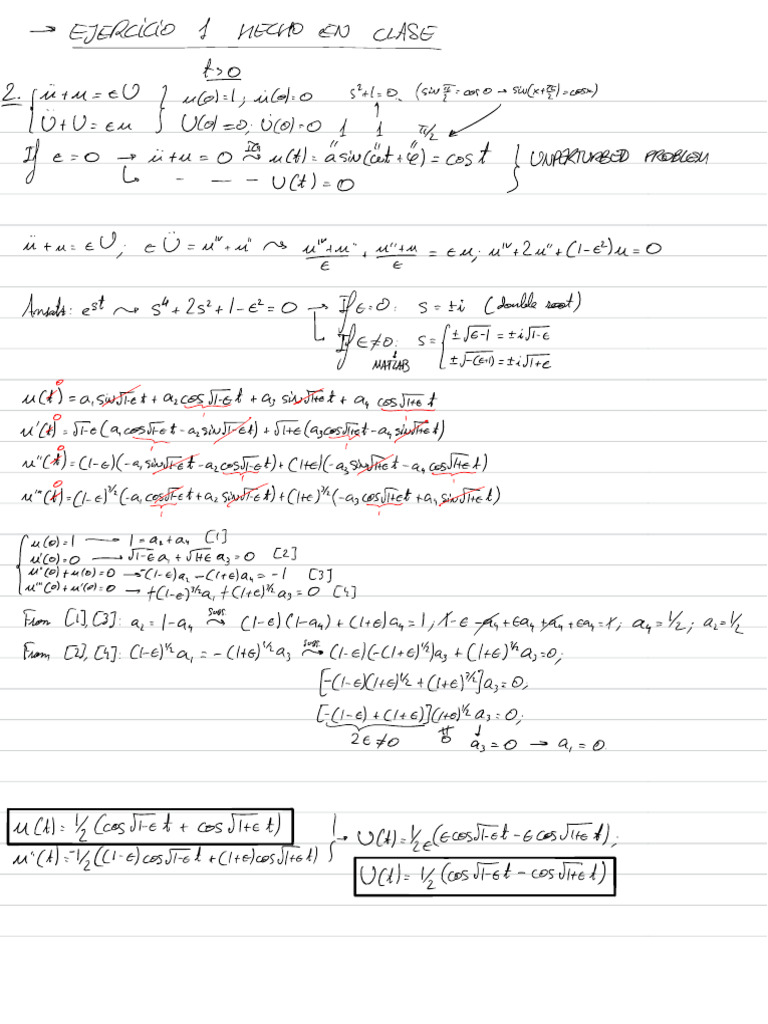 → EJERCICIO 1 HECHO EN CLASE
t>0
2. { ü+u=εU } u(0)=1; u̇(0)=0 s²+1=0. (sin π/2 = cos0 → sin(x+π/2)=cosx)
{ Ü+U=εu } U(0)=0; U̇(0)=0 1 1 π/2
If ε=0 → ü+u=0 ⇝ u(t)=a sin(ωt+φ)=cos t } UNPERTURBED PROBLEM
↳ - - - U(t)=0
ü+u=εU; εÜ=uᴵⱽ+u'' ⇝ (uᴵⱽ+u'')/ε + (u''+u)/ε = εu; uᴵⱽ+2u''+(1-ε²)u=0
Ansatz: e^{st} ⇝ s⁴+2s²+1-ε²=0 → If ε=0: s=±i (double root)
↳ If ε≠0: s= { ±√(ε-1) = ±i√(1-ε)
MATLAB ±√(-(ε+1)) = ±i√(1+ε)
u(t)=a₁sin√(1-ε)t+a₂cos√(1-ε)t+a₃sin√(1+ε)t+a₄cos√(1+ε)t
u'(t)=√(1-ε)(a₁cos√(1-ε)t-a₂sin√(1-ε)t)+√(1+ε)(a₃cos√(1+ε)t-a₄sin√(1+ε)t)
u''(t)=(1-ε)(-a₁sin√(1-ε)t-a₂cos√(1-ε)t)+(1+ε)(-a₃sin√(1+ε)t-a₄cos√(1+ε)t)
u'''(t)=(1-ε)^{3/2}(-a₁cos√(1-ε)t+a₂sin√(1-ε)t)+(1+ε)^{3/2}(-a₃cos√(1+ε)t+a₄sin√(1+ε)t)
u(0)=1 → 1=a₂+a₄ [1]
u'(0)=0 → √(1-ε)a₁+√(1+ε)a₃=0 [2]
u''(0)+u(0)=0 → -(1-ε)a₂-(1+ε)a₄=-1 [3]
u'''(0)+u'(0)=0 → +(1-ε)^{3/2}a₁+(1+ε)^{3/2}a₃=0 [4]
From [1],[3]: a₂=1-a₄ ⇝ (1-ε)(1-a₄)+(1+ε)a₄=1, 1-ε-a₄+εa₄+a₄+εa₄=1, a₄=1/2; a₂=1/2
From [2],[4]: (1-ε)^{1/2}a₁=-(1+ε)^{1/2}a₃ ⇝ (1-ε)(-(1+ε)^{1/2})a₃+(1+ε)^{3/2}a₃=0;
[-(1-ε)(1+ε)^{1/2}+(1+ε)^{3/2}]a₃=0,
[-(1-ε)+(1+ε)](1+ε)^{1/2}a₃=0;
2ε≠0 0 a₃=0 → a₁=0
u(t)=1/2(cos√(1-ε)t+cos√(1+ε)t)
u''(t)=-1/2((1-ε)cos√(1-ε)t+(1+ε)cos√(1+ε)t) } → U(t)=1/2ε(εcos√(1-ε)t-εcos√(1+ε)t);
U(t)=1/2(cos√(1-ε)t-cos√(1+ε)t)